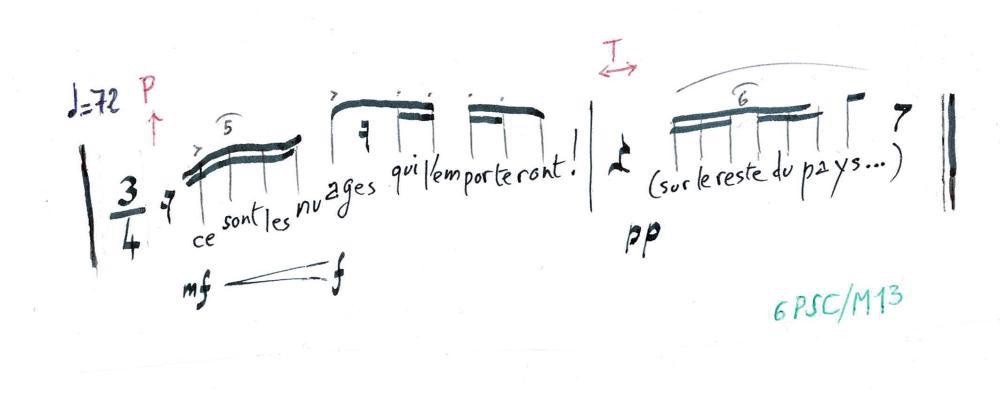 ♩=72 P T
5 6
3/4 ce sont les nuages qui l'emporteront! (sur le reste du pays...)
mf f pp
6PSC/M13